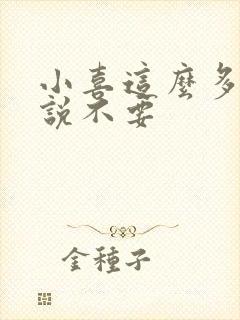 小喜這麼多
說不要
金種子